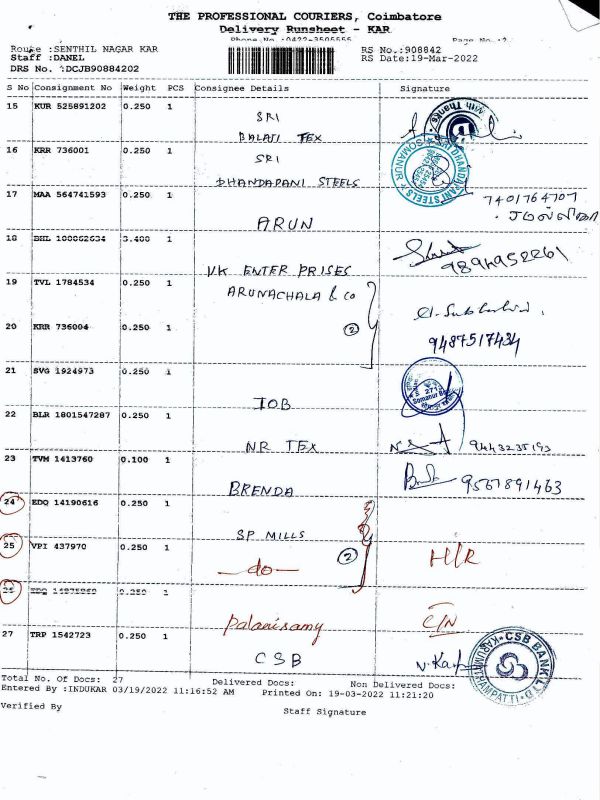 THE PROFESSIONAL COURIERS, Coimbatore
Delivery Runsheet - KAR
Phone No :0422-3505555 Page No.:2
Route :SENTHIL NAGAR KAR RS No.:908842
Staff :DANEL RS Date:19-Mar-2022
DRS No. :DCJB90884202
S No Consignment No Weight PCS Consignee Details Signature
15 KUR 525891202 0.250 1 SRI
BALAJI TEX
With Thanks
16 KRR 736001 0.250 1 SRI
DHANDAPANI STEELS
SRI DHANDAPANI STEELS SOMANUR
17 MAA 564741593 0.250 1 ARUN
7401764707
18 BHL 100062634 3.400 1 VK ENTER PRISES
9894952261
19 TVL 1784534 0.250 1 ARUNACHALA & CO
20 KRR 736004 0.250 1 2
9487517434
21 SVG 1924973 0.250 1 IOB
2712
Somanur
22 BLR 1801547287 0.250 1 NR TEX
9443235193
23 TVM 1413760 0.100 1 BRENDA
9567891463
24 EDQ 14190616 0.250 1 SP MILLS
25 VPI 437970 0.250 1 -do- 2 H/R
26 0.250 1 Palanisamy C/N
27 TRP 1542723 0.250 1 CSB
CSB BANK LTD KARUMATHAMPATTI
Total No. Of Docs: 27 Delivered Docs: Non Delivered Docs:
Entered By :INDUKAR 03/19/2022 11:16:52 AM Printed On: 19-03-2022 11:21:20
Verified By Staff Signature